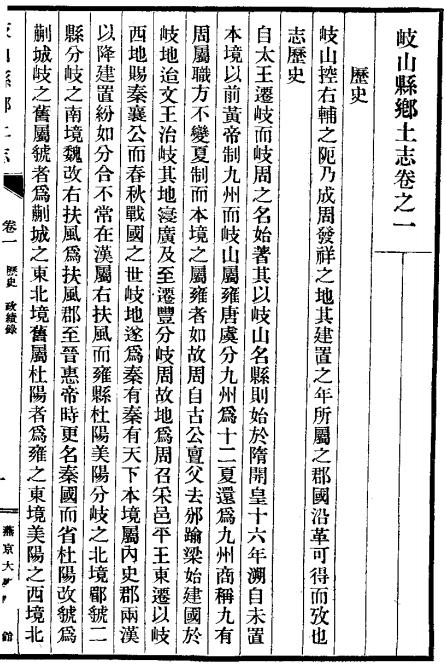 岐山縣鄉土志卷之一
歷史
岐山控右輔之阨乃成周發祥之地其建置之年所屬之郡國沿革可得而攷也
志歷史
自太王遷岐而岐周之名始著其以岐山名縣則始於隋開皇十六年溯自未置
本境以前黃帝制九州而岐山屬雍唐虞分九州爲十二夏還爲九州商稱九有
周屬職方不變夏制而本境之屬雍者如故周自古公亶父去邠踰梁始建國於
岐地迨文王治岐其地寖廣及至遷豐分岐周故地爲周召采邑平王東遷以岐
西地賜秦襄公而春秋戰國之世岐地遂爲秦有秦有天下本境屬內史郡兩漢
以降建置紛如分合不常在漢屬右扶風而雍縣杜陽美陽分岐之北境郿虢二
縣分岐之南境魏改右扶風爲扶風郡至晉惠帝時更名秦國而省杜陽改虢爲
蒯城岐之舊屬虢者爲蒯城之東北境舊屬杜陽者爲雍之東境美陽之西境北
山縣鄉土志
卷一
歷史
政績錄
燕京大
館